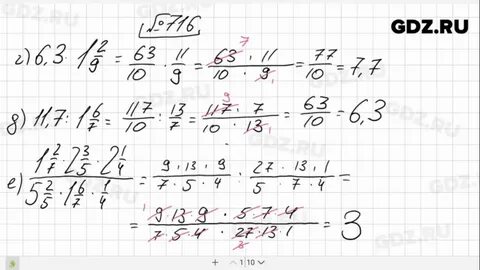 №716
GDZ.RU
г) 6,3 · 1 2/9 = 63/10 · 11/9 = 63 · 11/10 · 9 = 77/10 = 7,7
7
1
д) 11,7 : 1 6/7 = 117/10 : 13/7 = 117 · 7/10 · 13 = 63/10 = 6,3
9
1
е) 1 2/7 · 2 3/5 · 2 1/4 / 5 2/5 · 1 6/7 · 1/4 = 9 · 13 · 9/7 · 5 · 4 : 27 · 13 · 1/5 · 7 · 4 =
= 9 · 13 · 9 · 5 · 7 · 4/7 · 5 · 4 · 27 · 13 · 1 = 3
1
3
+ 1 | 10
GDZ.RU